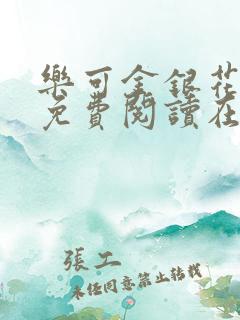 樂可金銀花
免費閱讀在
張工
未經同意禁止轉載